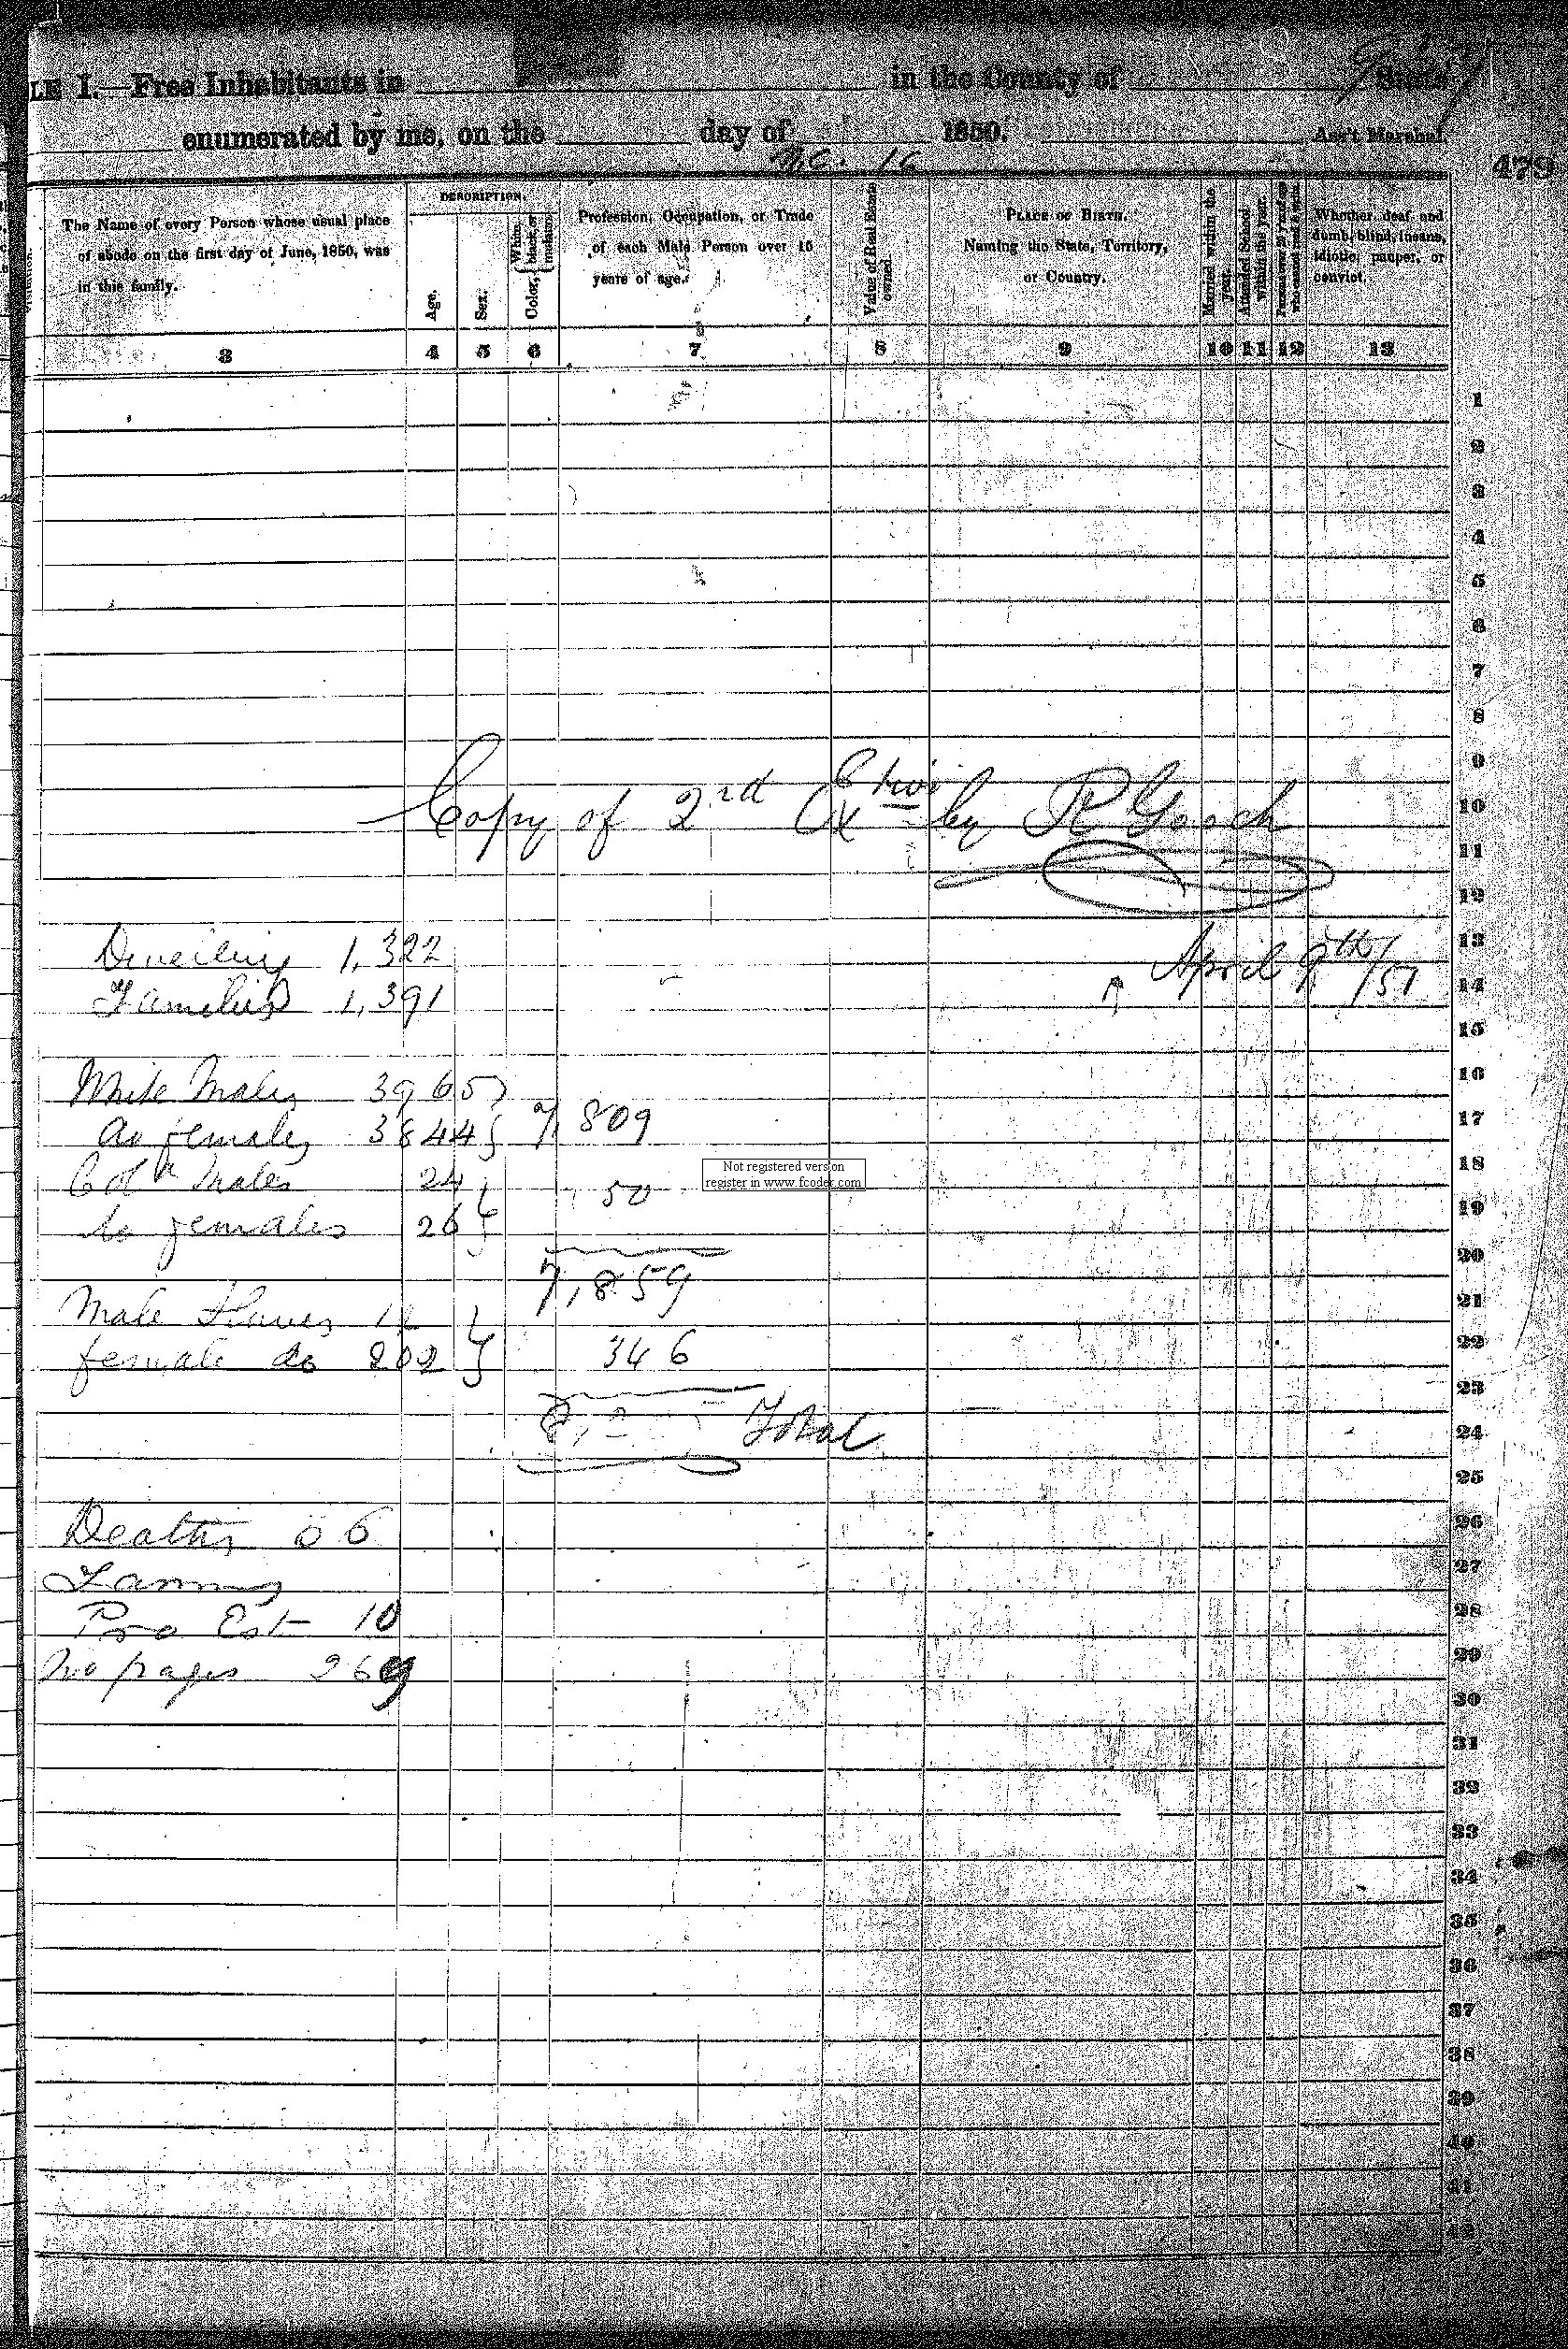 LE I.—Free Inhabitants in in the County of State
enumerated by me, on the day of 1850. Ass't Marshal.
479
The Name of every Person whose usual place
of abode on the first day of June, 1850, was
in this family.
DESCRIPTION.
Age.
Sex.
Color, { White, black, or mulatto.
Profession, Occupation, or Trade
of each Male Person over 15
years of age.
Value of Real Estate owned.
PLACE OF BIRTH.
Naming the State, Territory,
or Country.
Married within the year.
Attended School within the year.
Persons over 20 y'rs of age who cannot read & write.
Whether deaf and
dumb, blind, insane,
idiotic, pauper, or
convict.
3 4 5 6 7 8 9 10 11 12 13
1
2
3
4
5
6
7
8
9
Copy of 2nd by Gooch 10
11
12
13
Dwelling 1,322 April 9th/51
Families 1,391 14
15
16
White Males 3965
females 3844 7,809 17
18
Cold Males 24
Not registered version
register in www.fcoder.com
50
19
do females 26
20
7,859
21
Male Slaves
22
female do 202 346
23
8, Total 24
25
26
Deaths 6
27
Farms
28
Pro Est 10
29
No pages 269
30
31
32
33
34
35
36
37
38
39
40
41
42